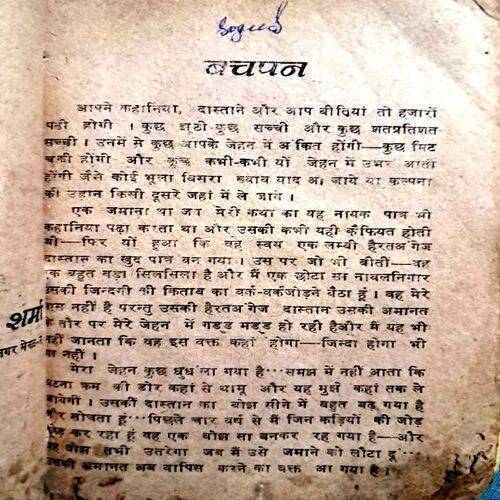 बचपन
आपने कहानिया, दास्ताने और आप बीतियां तो हजारों
पढी होगी । कुछ झूठी कुछ सच्ची और कुछ शतप्रतिशत
सच्ची । उनमें से कुछ आपके जेहन में अ कित होंगी—कुछ मिट
चुकी होंगी और कुछ कभी-कभी यों जेहन में उभर आती
होंगी जैसे कोई भूला बिसरा ख्वाब याद आ जाये या कल्पना
की उडान किसी दूसरे जहां में ले जाये ।
एक जमाना था जब मेरी कथा का यह नायक पात्र भी
कहानिया पढ़ा करता था और उसकी कभी यही कैफियत होती
थी—फिर यों हुआ कि वह स्वय एक लम्बी हैरतअ गेज
दास्तान का खुद पात्र बन गया । उस पर जो भी बीती—वह
एक बहुत बड़ा सिलसिला है और मैं एक छोटा सा नावलनिगार
उसकी जिन्दगी की किताब का वर्क-वर्कजोड़ने बैठा हूं । वह मेरे
पास नहीं है परन्तु उसकी हैरतअ गेज दास्तान उसकी अमानत
के तौर पर मेरे जेहन में गड्ड मड्ड हो रही हैऔर मैं यह भी
नहीं जानता कि वह इस वक्त कहां होगा—जिन्दा होगा भी
या नहीं ।
मेरा जेहन कुछ धुधला गया है···समझ में नहीं आता कि
घटना क्रम की डोर कहां से थामू और यह मुझे कहां तक ले
जायेगी । उसकी दास्तान का बोझ सीने में बहुत बढ़ गया है
और सोचता हूं···पिछले चार वर्ष से मैं जिन कड़ियों की जोड़
तोड़ कर रहा हूं वह एक बोझ सा बनकर रह गया है—और
यह बोझ तभी उतरेगा जब मैं उसे जमाने को लौटा दू···
उसकी अमानत अब वापिस करने का वक्त आ गया है ।
शर्मा